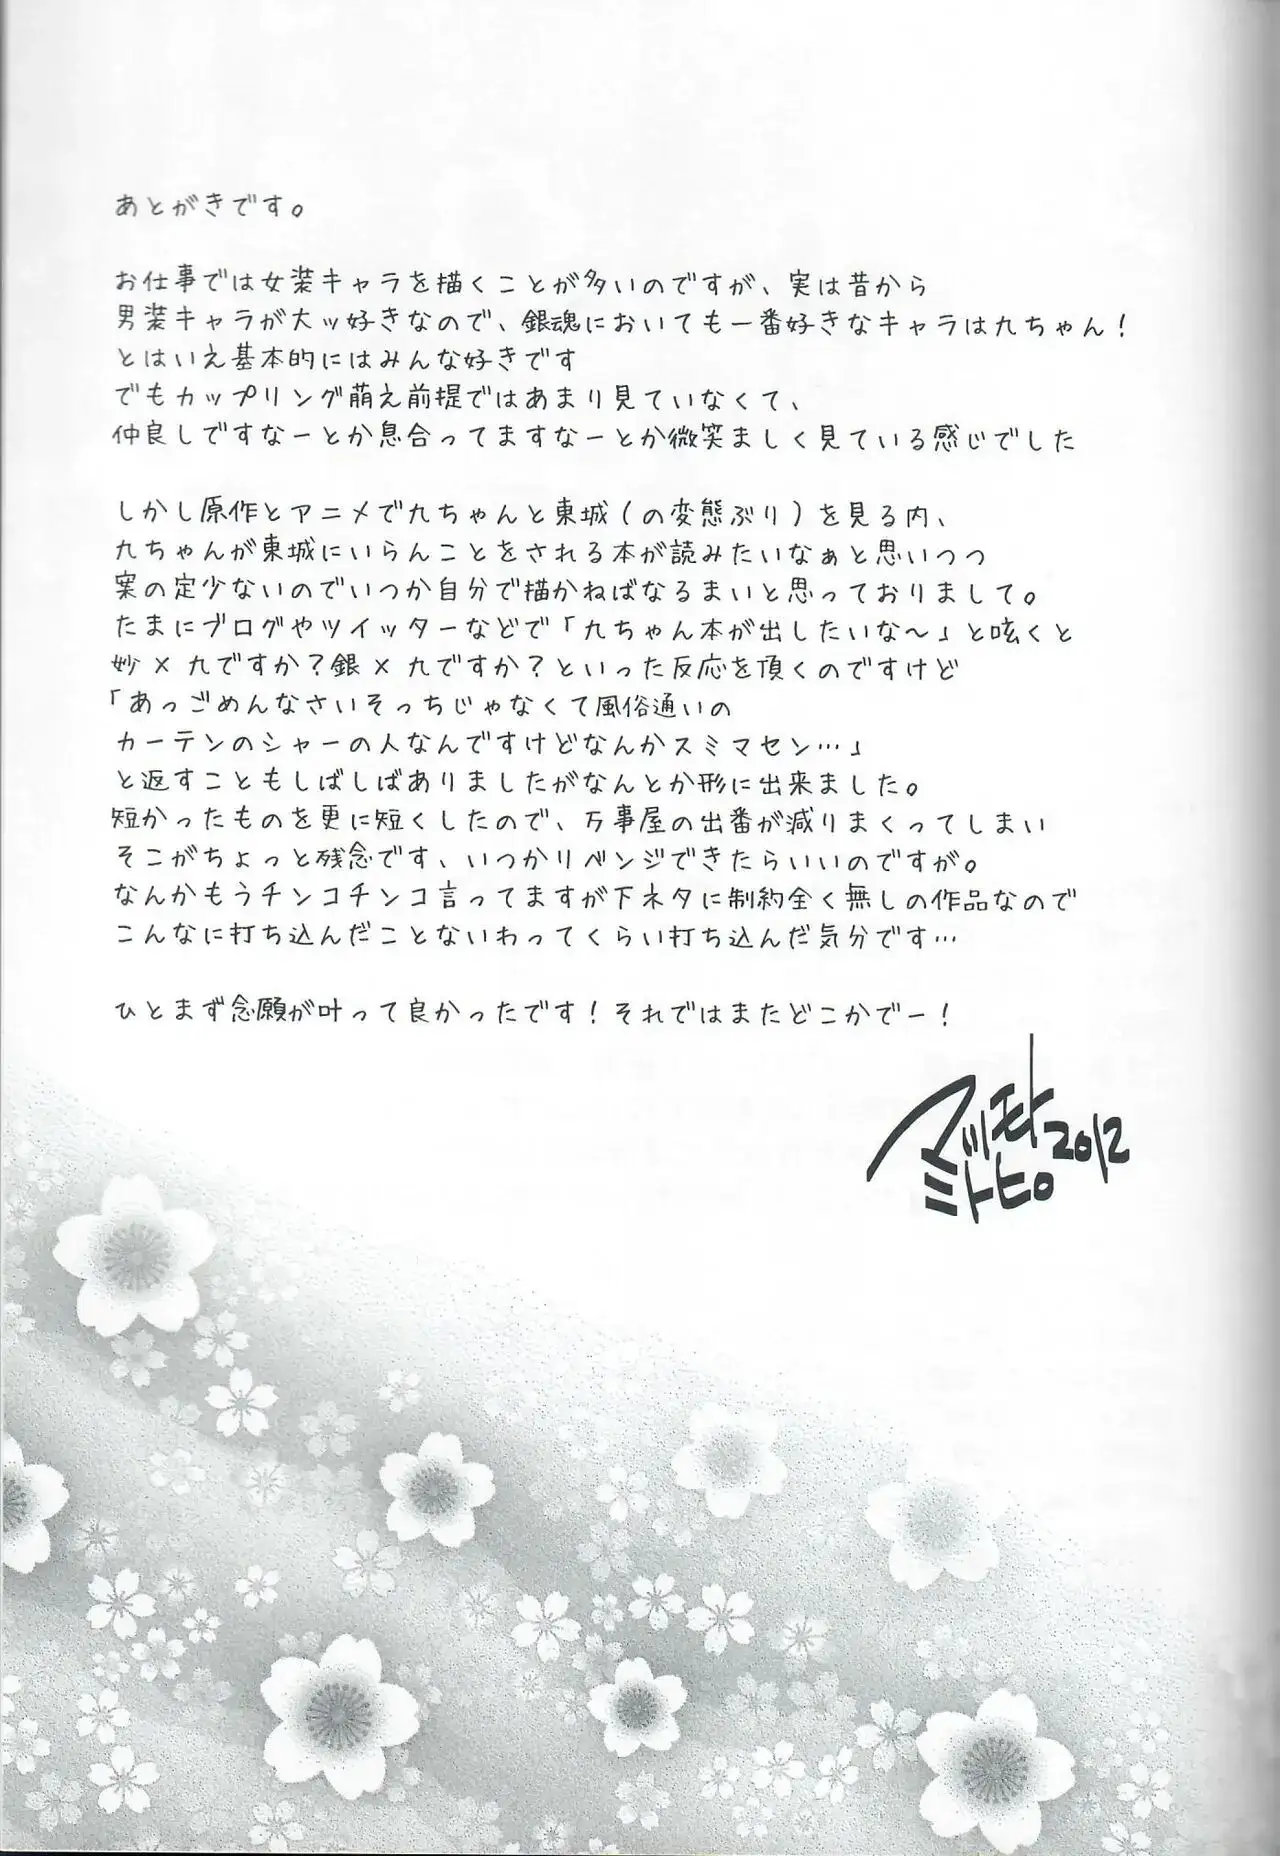 あとがきです。
お仕事では女装キャラを描くことが多いのですが、実は昔から
男装キャラが大ッ好きなので、銀魂においても一番好きなキャラは九ちゃん！
とはいえ基本的にはみんな好きです
でもカップリング萌え前提ではあまり見ていなくて、
仲良しですなーとか息合ってますなーとか微笑ましく見ている感じでした
しかし原作とアニメで九ちゃんと東城（の変態ぶり）を見る内、
九ちゃんが東城にいらんことをされる本が読みたいなぁと思いつつ
案の定少ないのでいつか自分で描かねばなるまいと思っておりまして。
たまにブログやツイッターなどで「九ちゃん本が出したいな〜」と呟くと
妙×九ですか？銀×九ですか？といった反応を頂くのですけど
「あっごめんなさいそっちじゃなくて風俗通いの
カーテンのシャーの人なんですけどなんかスミマセン…」
と返すこともしばしばありましたがなんとか形に出来ました。
短かったものを更に短くしたので、万事屋の出番が減りまくってしまい
そこがちょっと残念です、いつかリベンジできたらいいのですが。
なんかもうチンコチンコ言ってますが下ネタに制約全く無しの作品なので
こんなに打ち込んだことないわってくらい打ち込んだ気分です…
ひとまず念願が叶って良かったです！それではまたどこかでー！
マツモト2012
ミトヒロ